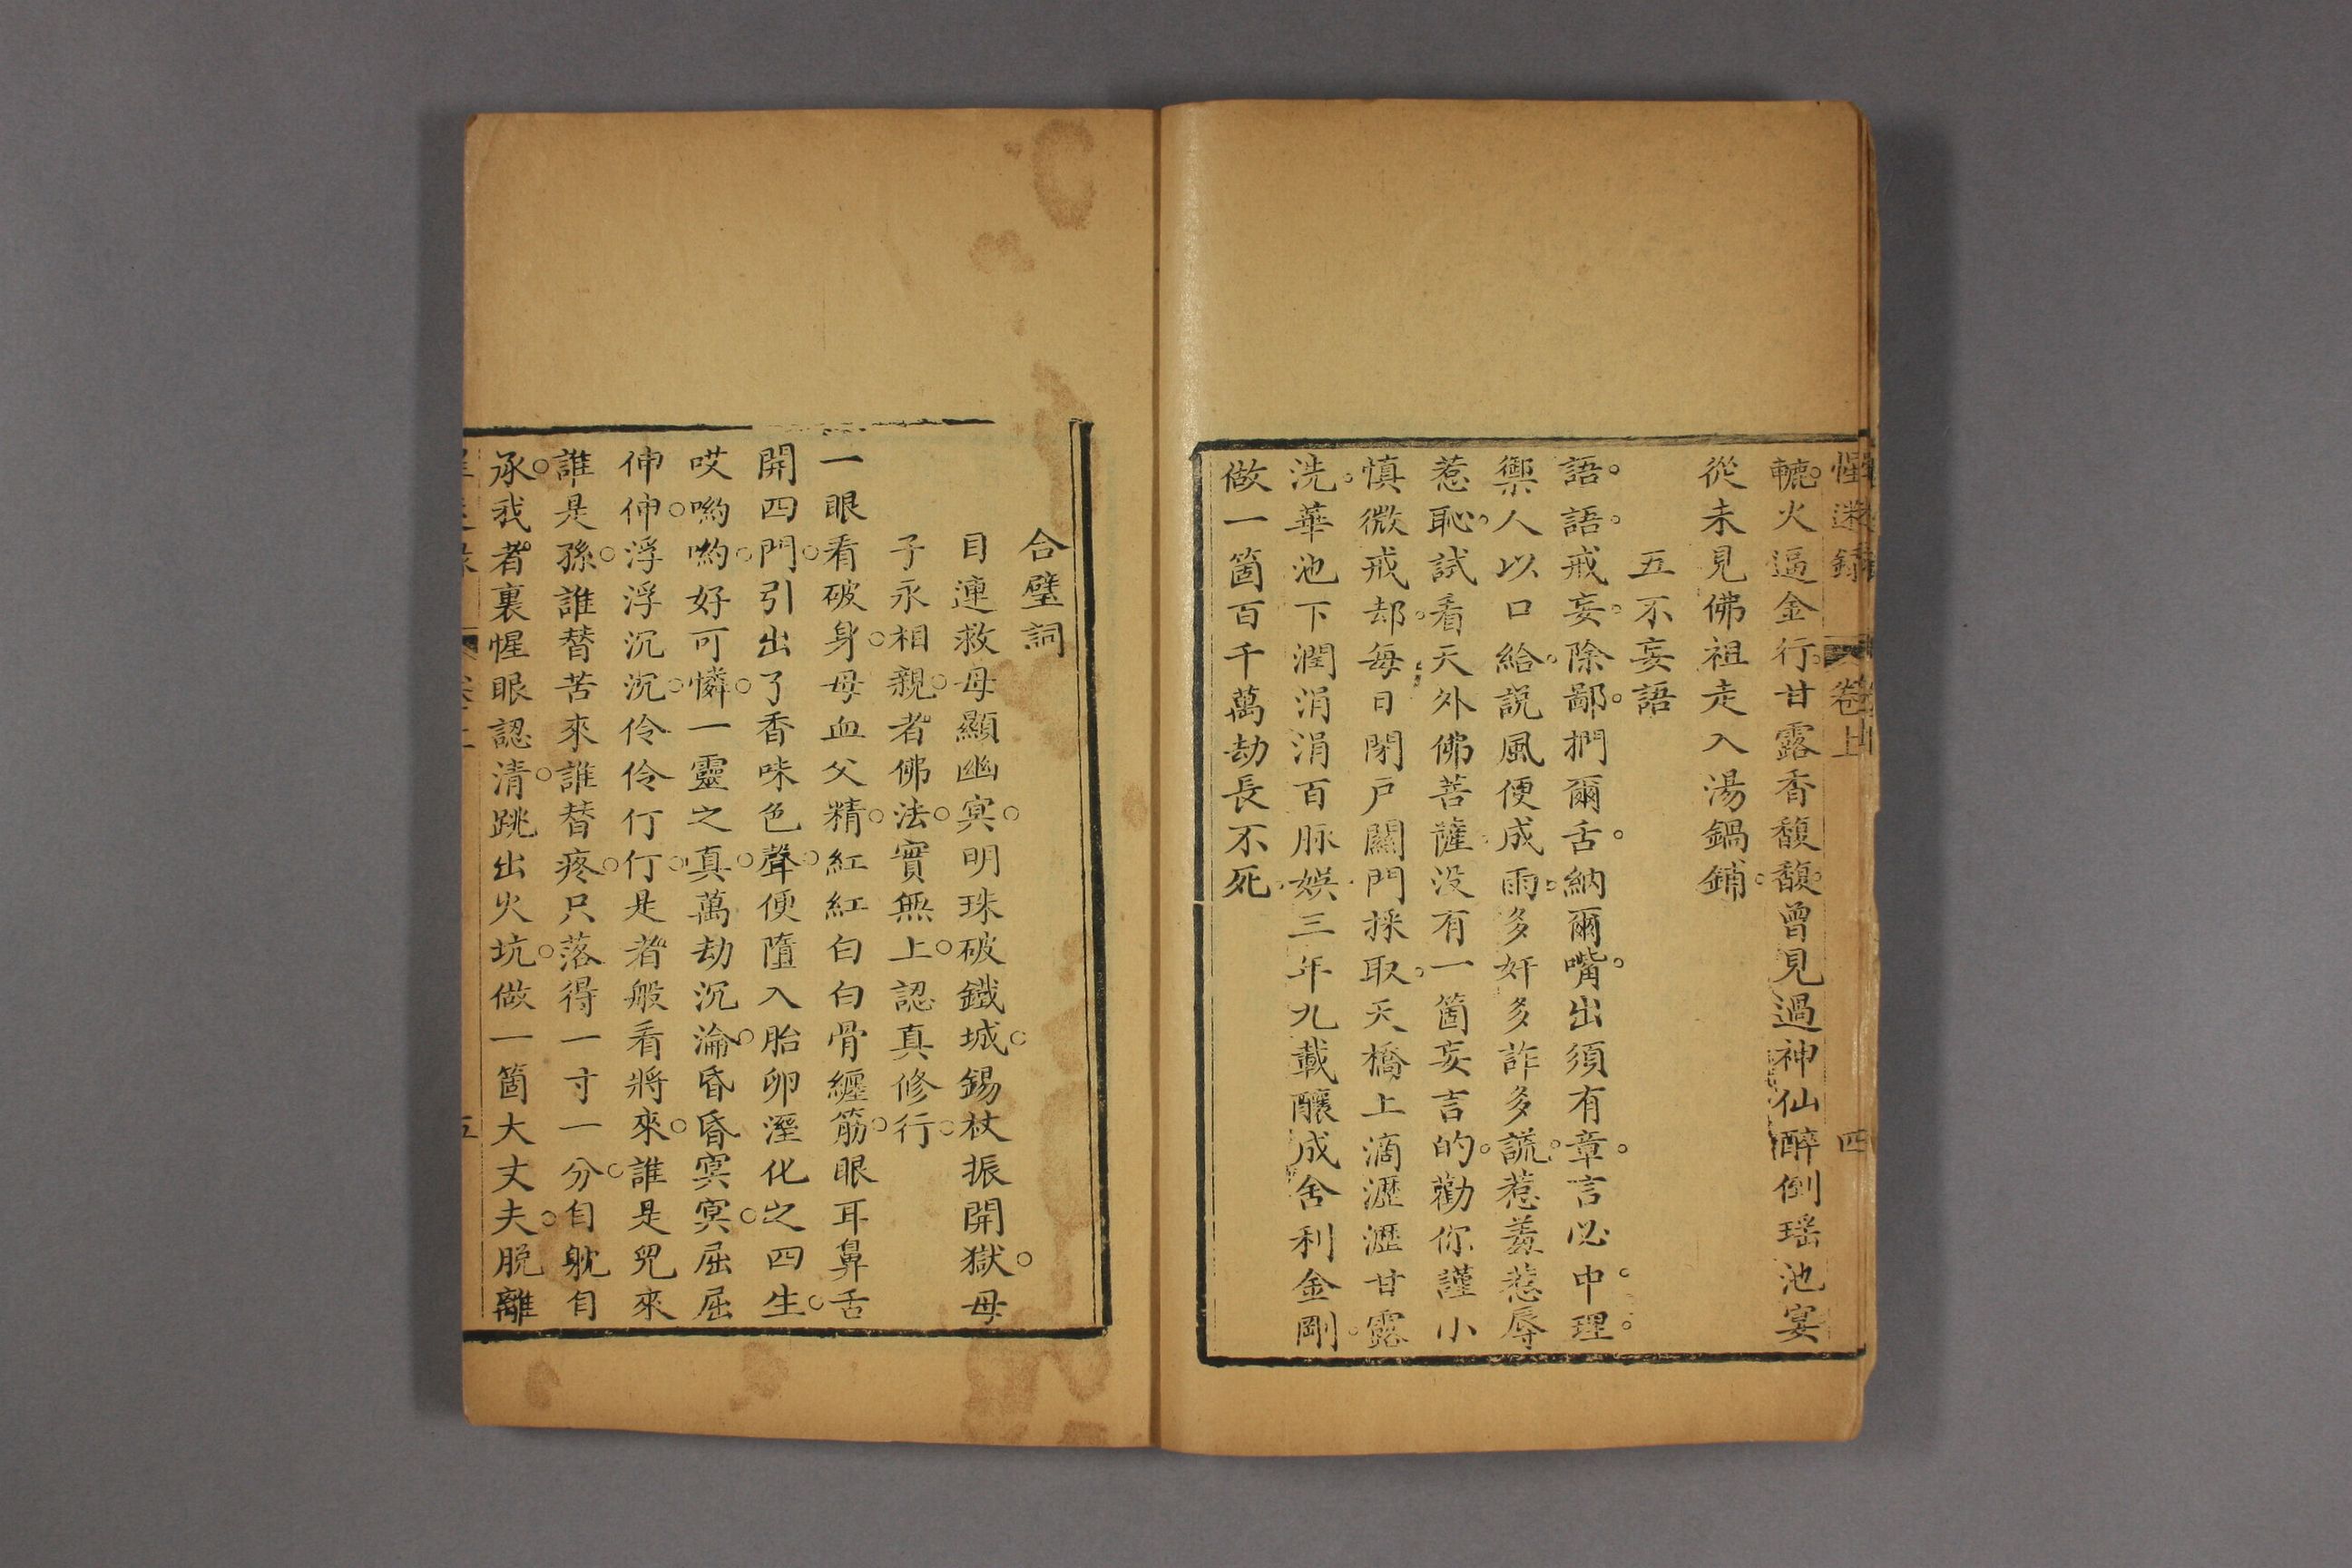 惺迷錄 卷上 四
轆火逼金行甘露香馥馥曾見過神仙醉倒瑤池宴
從未見佛祖走入湯鍋鋪
五不妄語
語語戒妄除鄙捫爾舌納爾嘴出須有章言必中理
禦人以口給説風便成雨多奸多詐多謊惹羞惹辱
惹恥試看天外佛菩薩没有一箇妄言的勸你謹小
慎微戒却每日閉戸關門採取天橋上滴瀝瀝甘露
洗華池下潤涓涓百脉娱三年九載釀成舍利金剛
做一箇百千萬劫長不死
合璧詞
目連救母顯幽冥明珠破鐵城錫杖振開獄母
子永相親者佛法實無上認真修行
一眼看破身母血父精紅紅白白骨纏筋眼耳鼻舌
開四門引出了香味色聲便墮入胎卵溼化之四生
哎喲喲好可憐一靈之真萬劫沉淪昏昏冥冥屈屈
伸伸浮浮沉沉伶伶仃仃是者般看將來誰是兒來
誰是孫誰替苦來誰替疼只落得一寸一分自躭自
承我者裏惺眼認清跳出火坑做一箇大丈夫脱離
五